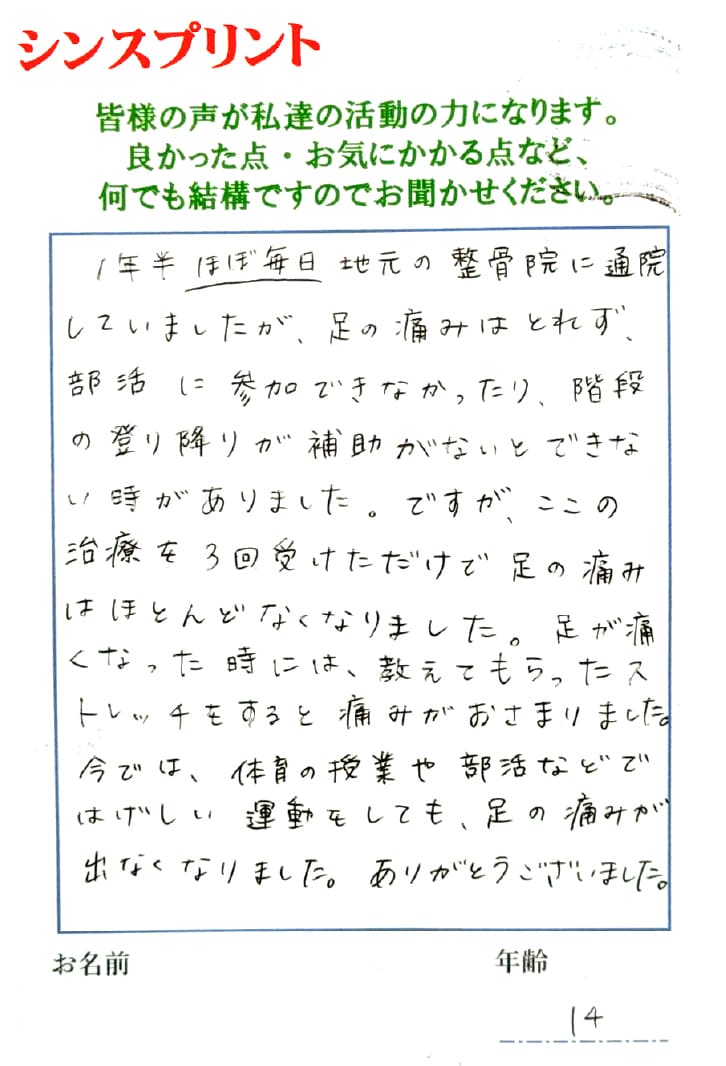 シンスプリント
皆様の声が私達の活動の力になります。
良かった点・お気にかかる点など、
何でも結構ですのでお聞かせください。
1年半 ほぼ毎日 地元の整骨院に通院
していましたが、足の痛みはとれず、
部活に参加できなかったり、階段
の登り降りが補助がないとできな
い時がありました。ですが、ここの
治療を3回受けただけで足の痛み
はほとんどなくなりました。足が痛
くなった時には、教えてもらったス
トレッチをすると痛みがおさまりました。
今では、体育の授業や部活などで
はげしい運動をしても、足の痛みが
出なくなりました。ありがとうございました。
お名前
年齢
14